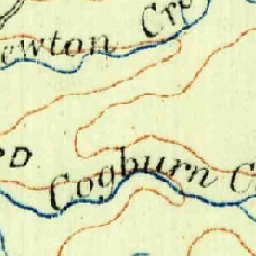 ewton Cre
D
Cogburn C